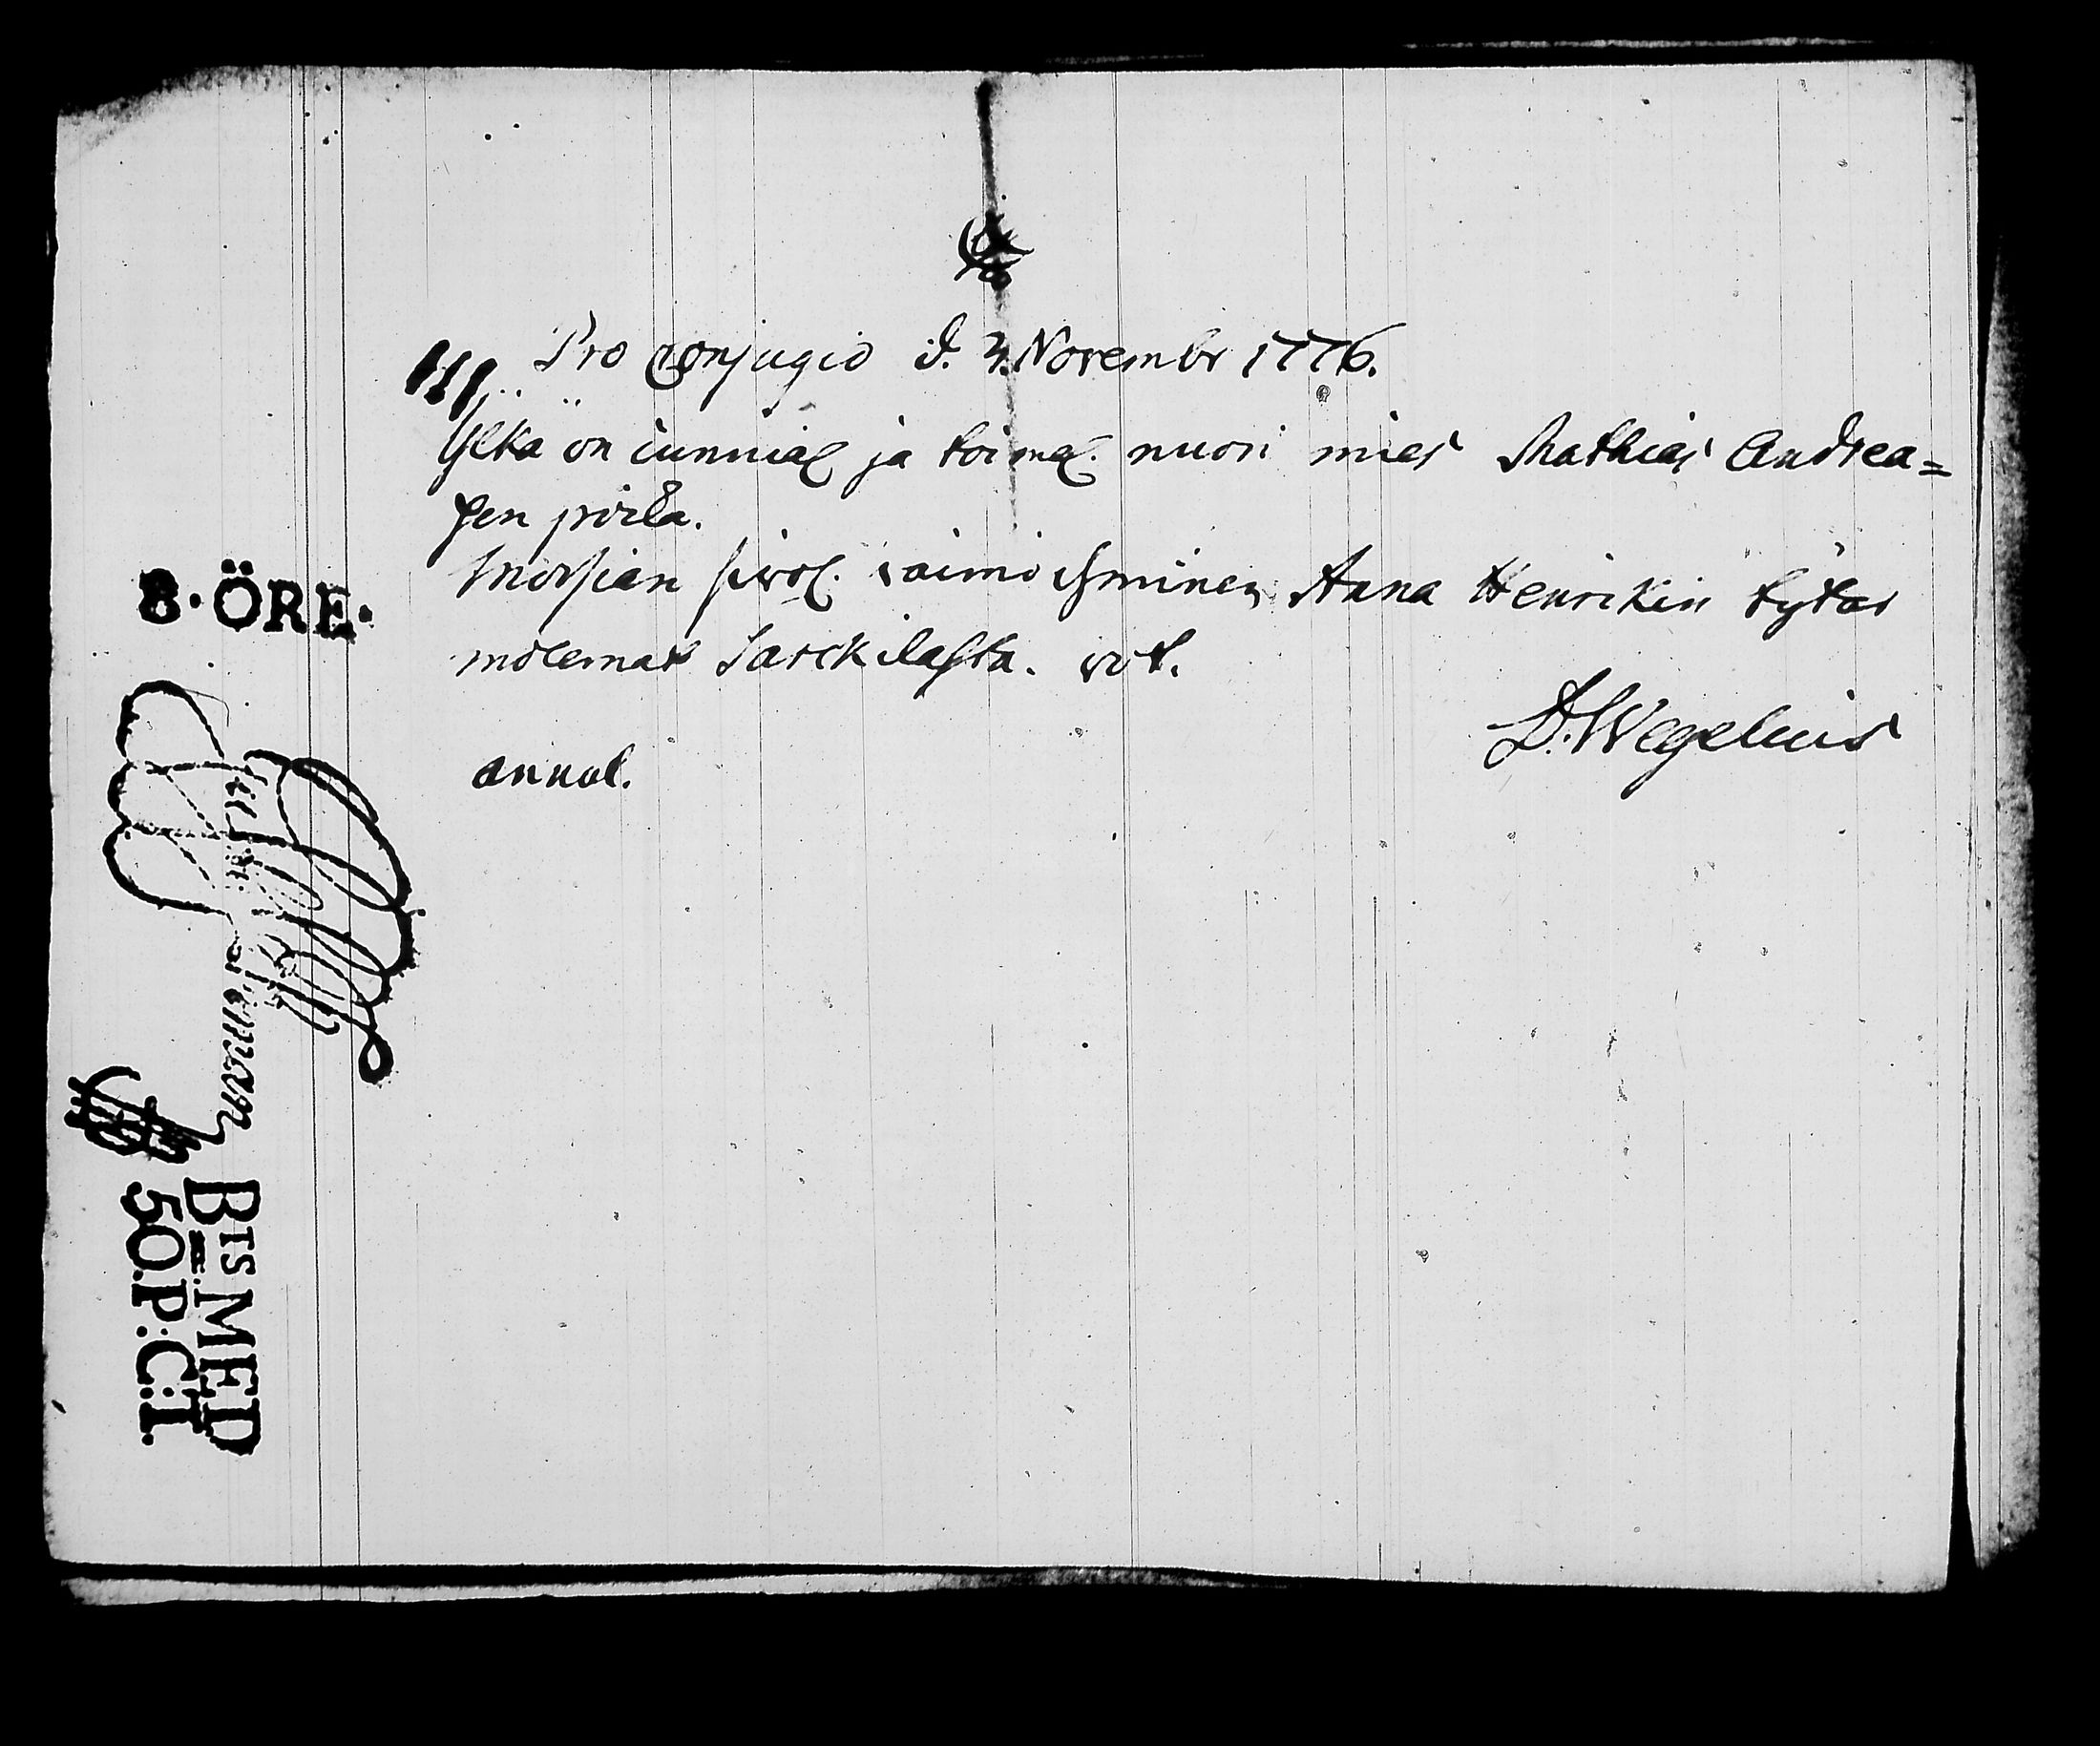 Pro Conjugio d. 3. Novembr 1776.
Ylkä on cunnial ja toimel. nuori mies Mathias Andrea=
sen poica.
Morsian siwol. waimo ihminen Anna Henrikin tytär
molemat Sarckilasta. vot.
D. Wegelius
annol.
8·ÖRE·
BTS MED
50.P:C:T.